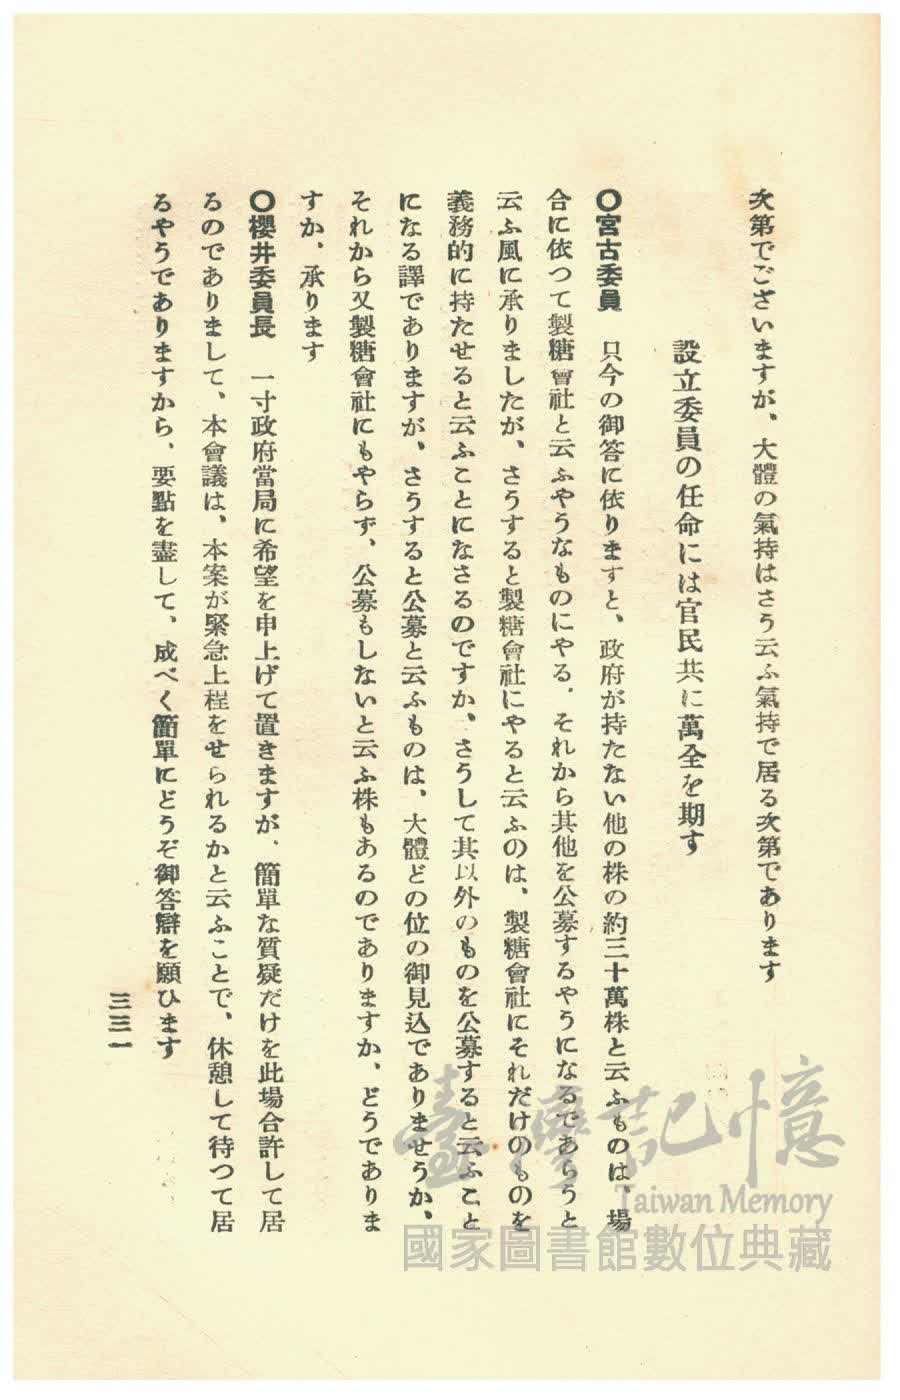 次第でございますが、大體の氣持はさう云ふ氣持で居る次第であります
設立委員の任命には官民共に萬全を期す
〇宮古委員 只今の御答に依りますと、政府が持たない他の株の約三十萬株と云ふものは、場
合に依つて製糖會社と云ふやうなものにやる、それから其他を公募するやうになるであらうと
云ふ風に承りましたが、さうすると製糖會社にやると云ふのは、製糖會社にそれだけのものを
義務的に持たせると云ふことになさるのですか、さうして其以外のものを公募すると云ふこと
になる譯でありますが、さうすると公募と云ふものは、大體どの位の御見込でありませうか、
それから又製糖會社にもやらず、公募もしないと云ふ株もあるのでありますか、どうでありま
すか、承ります
〇櫻井委員長 一寸政府當局に希望を申上げて置きますが、簡單な質疑だけを此場合許して居
るのでありまして、本會議は、本案が緊急上程をせられるかと云ふことで、休憩して待つて居
るやうでありますから、要點を盡して、成べく簡單にどうぞ御答辯を願ひます
三三一
臺灣記憶
Taiwan Memory
國家圖書館數位典藏